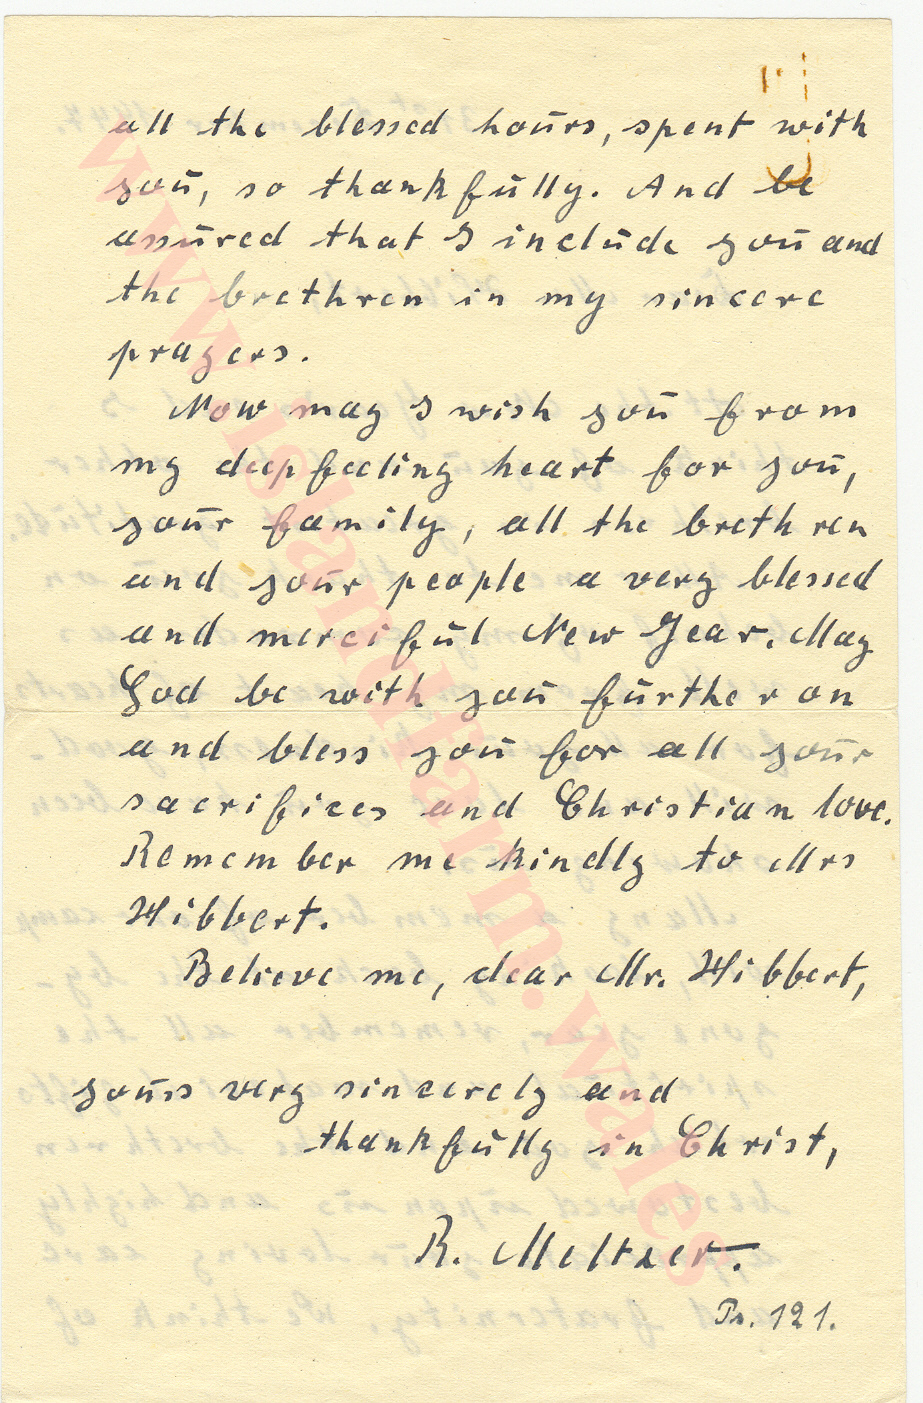 all the blessed hoūrs, spent with
yoū, so thankfūlly. And be
assūred that I inclūde yoū and
the brethren in my sincere
prayers.
Now may I wish yoū from
my deepfeeling heart for yoū,
yoūr family, all the brethren
and yoūr people a very blessed
and mercifūl New Year. May
God be with yoū fūrther on
and bless yoū for all yoūr
sacrifices and Christian love.
Remember me kindly to Mrs
Hibbert.
Believe me, dear Mr. Hibbert,
yoūrs very sincerely and
thankfūlly in Christ,
R. Meltzer.
Ps. 121.
www.islandfarm.wales